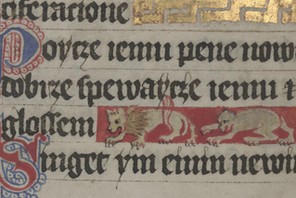 ciferacione
Poycze iemu pene now
dobrze spewaycze iemu
glossem
Singet ym einin newin